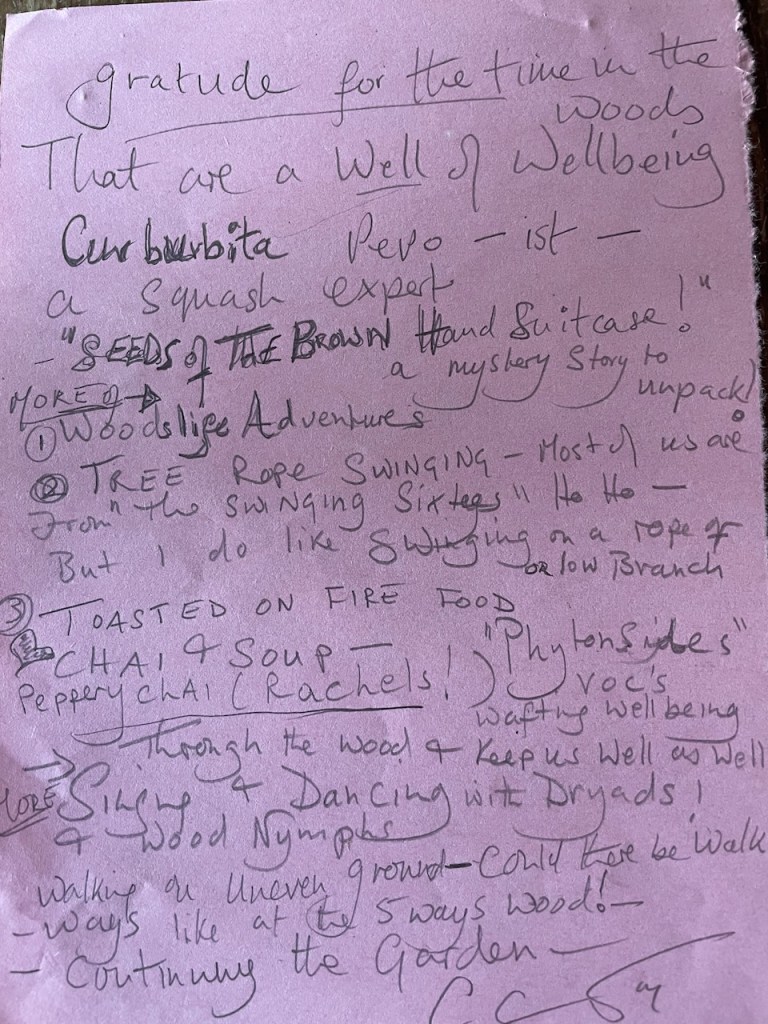 gratude for the time in the
woods
That are a Well of Wellbeing
Curburbita Pepo - ist -
a Squash expert
- "SEEDS of THE BROWN Hand Suitcase!"
a mystery Story to
unpack!
MORE of →
① Woodslife Adventures
② TREE ROPE SWINGING - Most of us are
From "the SWINGING Sixtees" Ho Ho -
But I do like Swinging on a rope
or low Branch
③ TOASTED ON FIRE FOOD
CHAI & SOUP - "Phytonsides"
Peppery CHAI (Rachels!) VOC's
wafting wellbeing
→ Through the wood & Keep us Well as Well
MORE Singing & Dancing with Dryads!
& Wood Nymphs
Walking on Uneven ground - Could there be Walk
- Ways like at the 5 ways Wood! -
- Continuing the Garden -